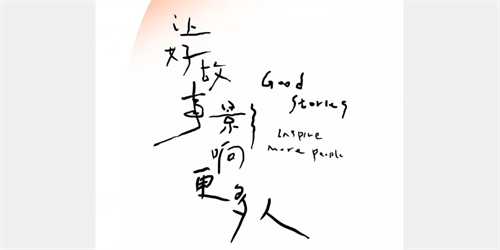 让
好故
事影
响
更多人
Good
Stories
Inspire
more people